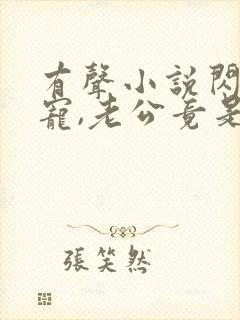 有聲小說閃
寵,老公竟是
張笑然